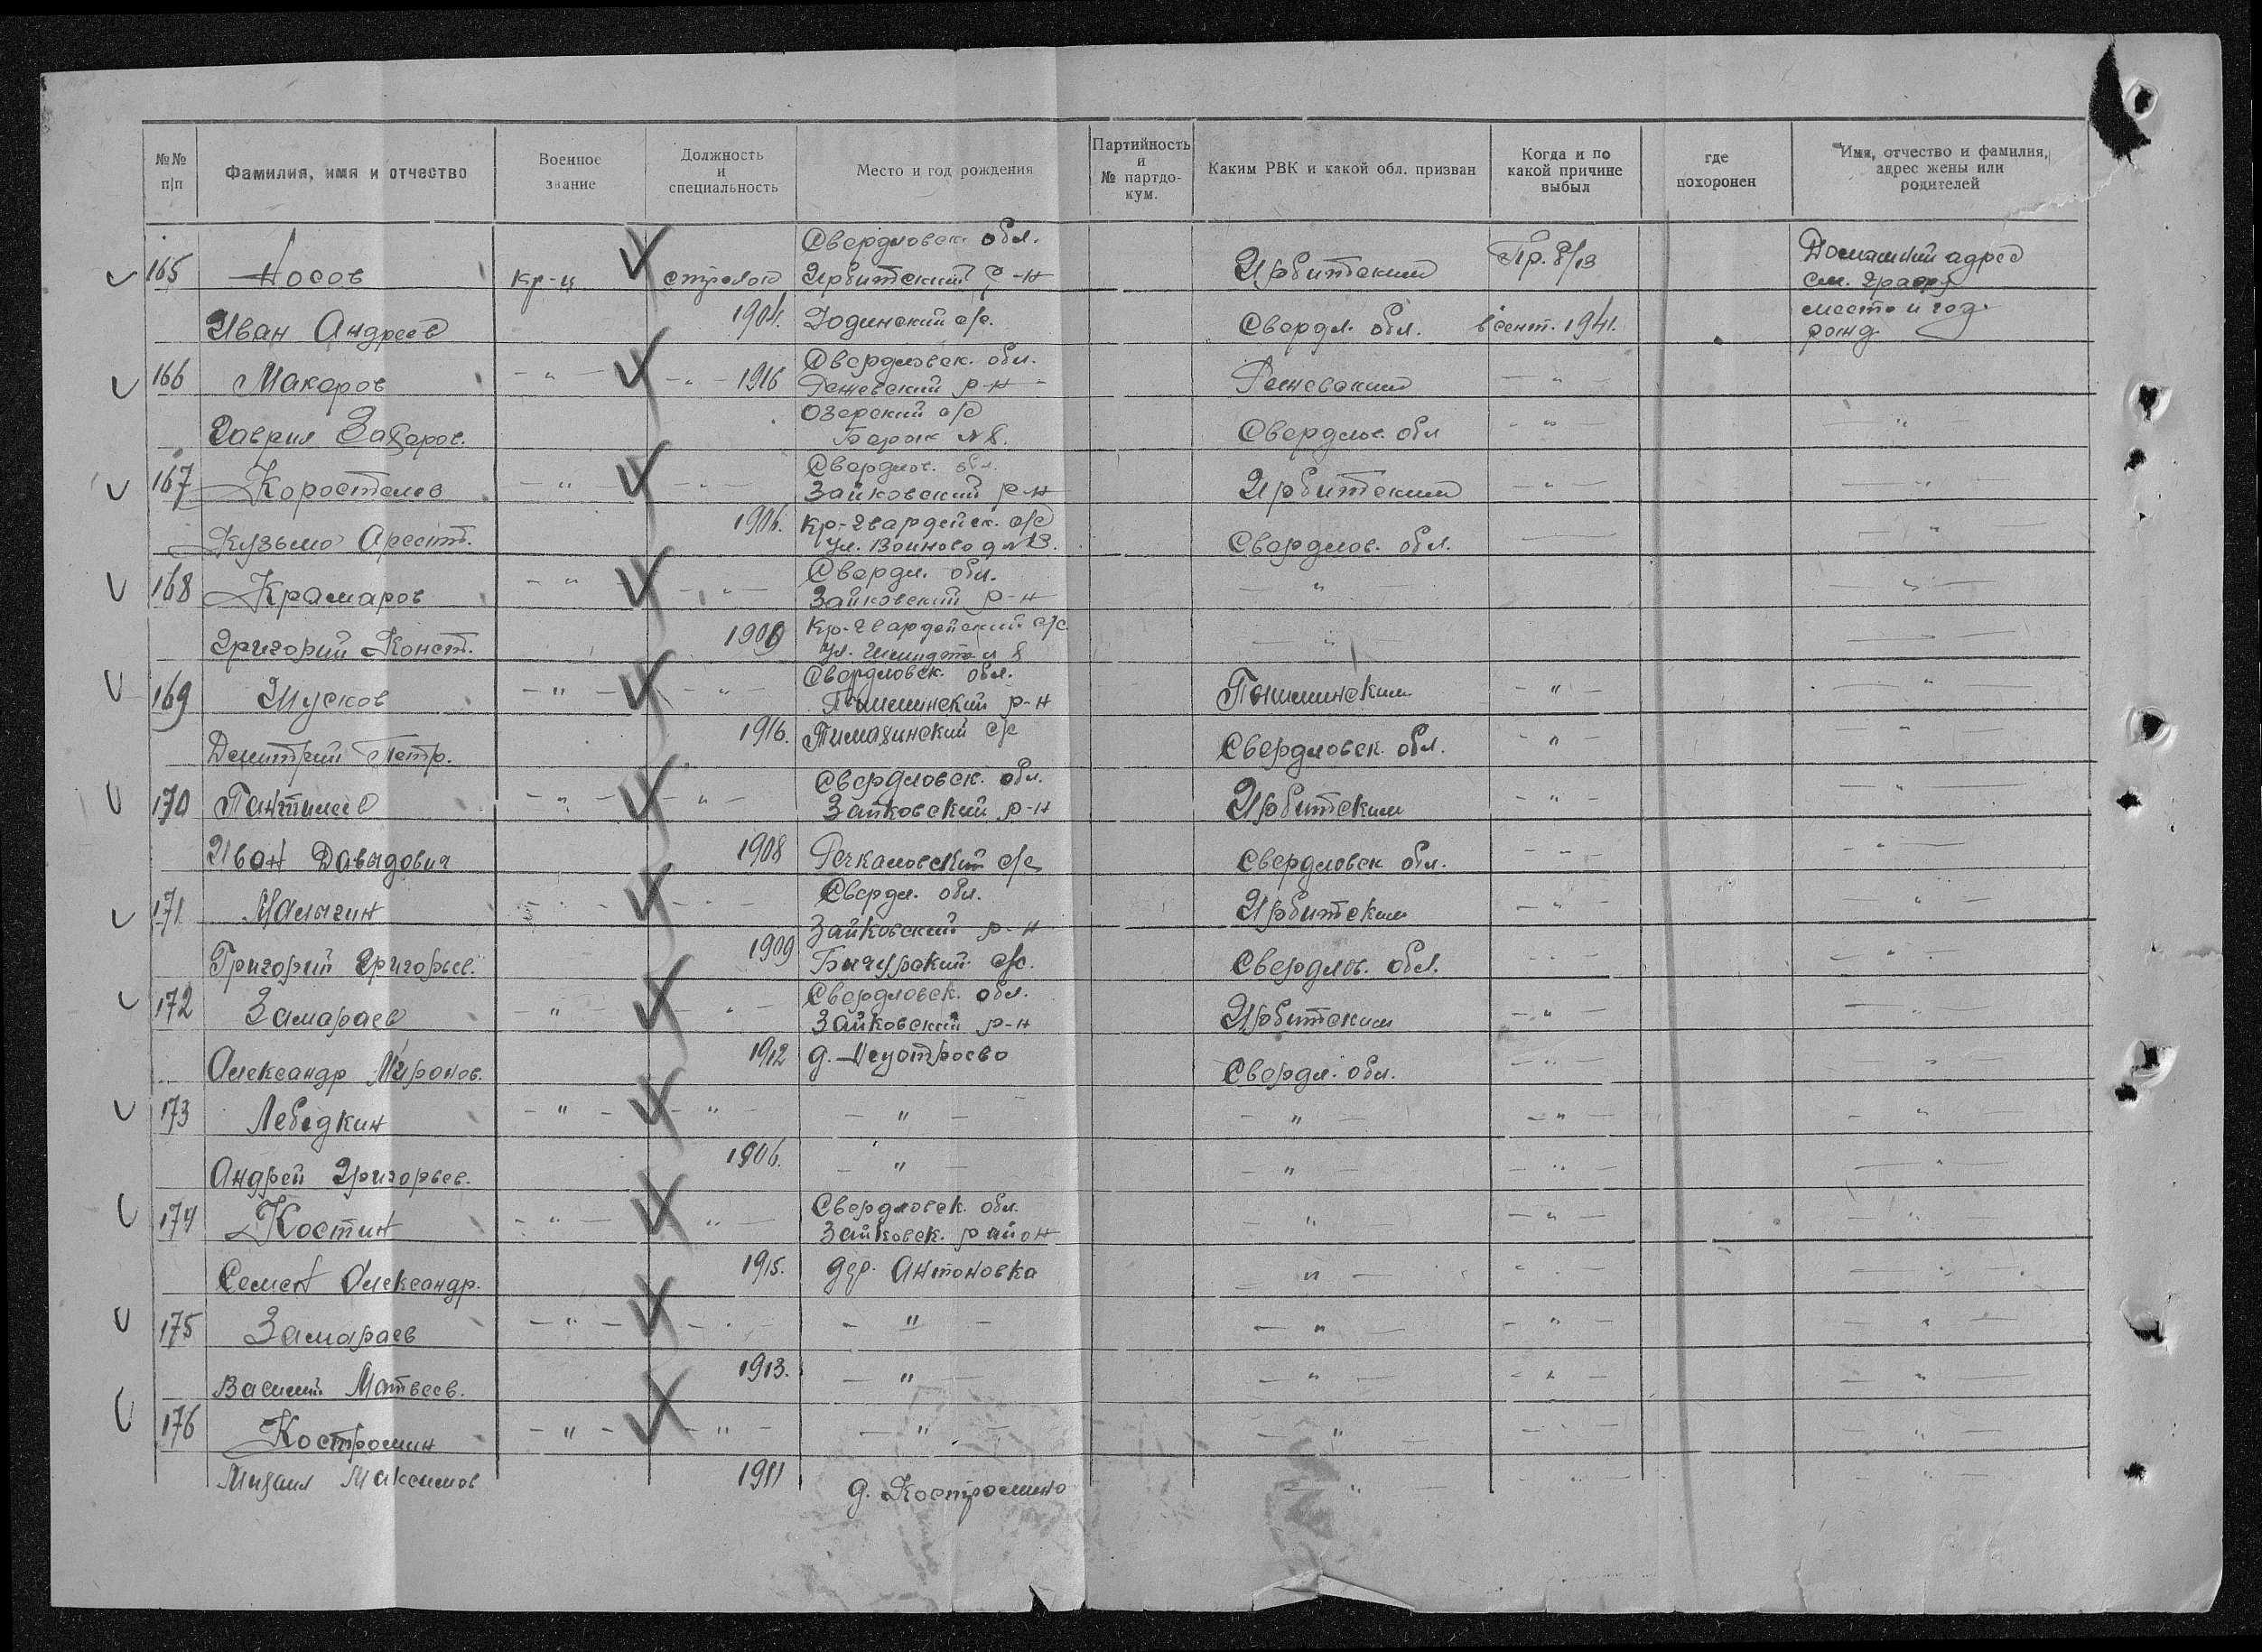 №№ п|п
Фамилия, имя и отчество
Военное звание
Должность и специальность
Место и год рождения
Партийность и № партдокум.
Каким РВК и какой обл. призван
Когда и по какой причине выбыл
где похоронен
Имя, отчество и фамилия, адрес жены или родителей
Свердловск. обл.
165 Носов кр-ц стрелок Ирбитский р-н Ирбитским Пр. б/в Домашний адрес
см. графу
Иван Андреев 1904. Свердл. обл. в сент. 1941. место и год
рожд
Свердловск. обл.
166 Макаров -"- -"- 1916 Режевский р-н Режевским -"-
Озерский с/с
Гаврил Захаров. Барак №8. Свердлов. обл -"- -"-
Свердлов. обл.
167 Коростелев -"- -"- Зайковский р-н Ирбитским -"- -"-
1906. Кр-гвардейск. с/с
Кузьма ул. Воинова д №13. Свердлов. обл. -"-
Свердл. обл.
168 Крамаров -"- -"- Зайковский р-н -"- -"-
1909 Кр-гвардейский с/с
Григорий Конст. ул. Шмидта № 8 -"-
Свердловск. обл.
169 Шусков -"- -"- Пышминский р-н Пышминским -"- -"-
1916. Тимохинский с/с
Дмитрий Петр. Свердловск. обл. -"- -"-
Свердловск. обл.
170 Пантилеев -"- -"- Зайковский р-н Ирбитским -"- -"-
Иван Давыдович 1908 Речкаловский с/с Свердловск обл. -"- -"-
Свердл. обл.
171. Малыгин -"- -"- Ирбитским -"- -"-
Зайковский р-н
Григорий Григорьев. 1909 Бичурский с/с. Свердлов. обл. -"- -"-
Свердловск. обл.
172 Замараев -"- -"- Зайковский р-н Ирбитским -"- -"-
Александр Миронов. 1912 д. Неустроево Свердл. обл. -"- -"-
173 Лебедкин -"- -"- -"- -"- -"- -"-
Андрей Григорьев. 1906. -"- -"- -"- -"-
Свердловск. обл.
174 Костин -"- -"- Зайковск. район -"- -"- -"-
Семен Александр. 1915. дер. Антоновка -"- -"- -"-
175 Замараев -"- -"- -"- -"- -"- -"-
Василий Матвеев. 1913. -"- -"- -"- -"-
176 Костромин -"- -"- -"- -"- -"- -"-
Михаил Максимов 1911 д. Костромино -"- -"- -"-